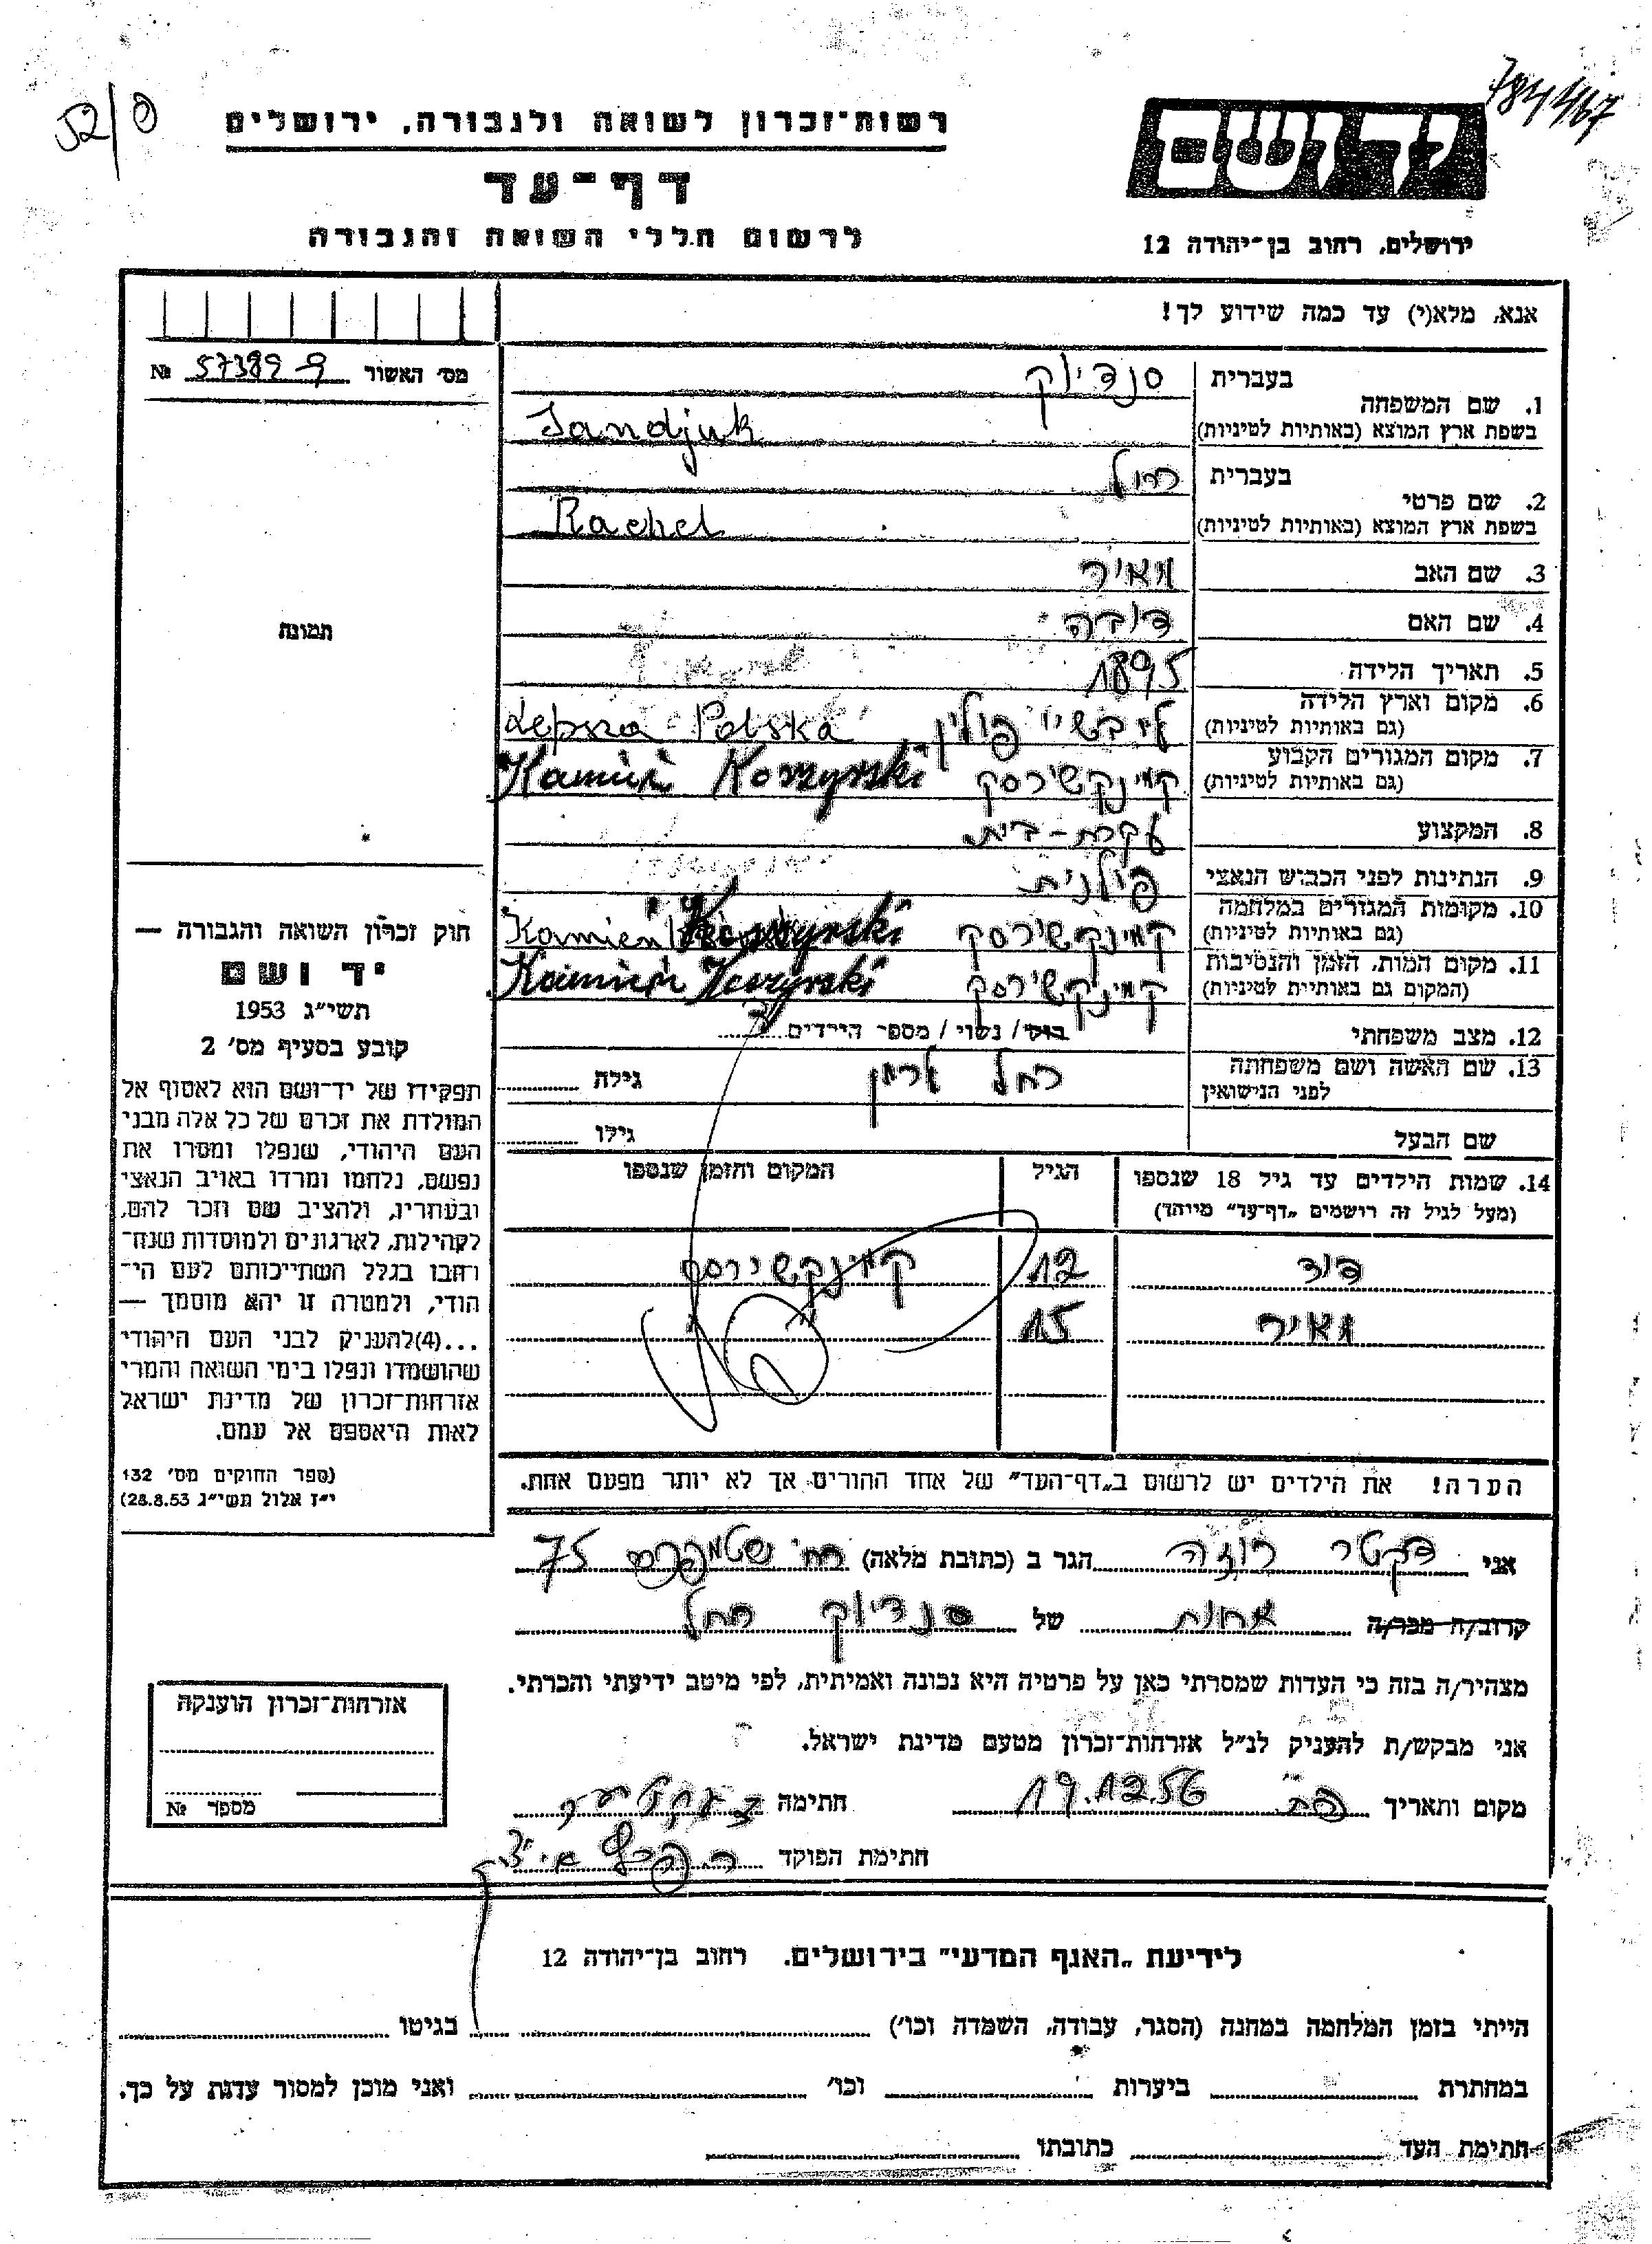 784467
רשות־זכרון לשואה ולגבורה, ירושלים
דף־עד
לרשום חללי השואה והגבורה
יד ושם
ירושלים, רחוב בן־יהודה 12
אנא, מלא(י) עד כמה שידוע לך!
מס׳ האשור № 57389
תמונה
בעברית סנדיוק
1. שם המשפחה
בשפת ארץ המוצא (באותיות לטיניות) Sandjuk
בעברית רחל
2. שם פרטי
בשפת ארץ המוצא (באותיות לטיניות) Rachel
3. שם האב מאיר
4. שם האם דובה
5. תאריך הלידה 1895
6. מקום וארץ הלידה
(גם באותיות לטיניות) ליבשיי פולין Lepsza - Polska
7. מקום המגורים הקבוע
(גם באותיות לטיניות) קמינקשירסק Kamień Korzyrski
8. המקצוע עקרת-בית
9. הנתינות לפני הכבוש הנאצי פולנית
10. מקומות המגורים במלחמה
(גם באותיות לטיניות) קמינקשירסק Kamień Korzyrski
11. מקום המות, הזמן והנסיבות
(המקום גם באותיות לטיניות) קמינקשירסק Kamień Korzyrski
12. מצב משפחתי רווק / נשוי / מספר הילדים 2
13. שם האשה ושם משפחתה
לפני הנישואין רחל גילה
שם הבעל גילו
14. שמות הילדים עד גיל 18 שנספו
(מעל לגיל זה רושמים „דף־עד״ מיוחד)
הגיל
המקום והזמן שנספו
דוד 12 קמינקשירסק
מאיר 15 ״ ״
הערה! את הילדים יש לרשום ב„דף־העד״ של אחד ההורים אך לא יותר מפעם אחת.
חוק זכרון השואה והגבורה —
יד ושם
תשי״ג 1953
קובע בסעיף מס׳ 2
תפקידו של יד־ושם הוא לאסוף אל
המולדת את זכרם של כל אלה מבני
העם היהודי, שנפלו ומסרו את
נפשם, נלחמו ומרדו באויב הנאצי
ובעוזריו, ולהציב שם וזכר להם,
לקהילות, לארגונים ולמוסדות שנח־
רבו בגלל השתייכותם לעם הי־
הודי, ולמטרה זו יהא מוסמך —
...(4) להעניק לבני העם היהודי
שהושמדו ונפלו בימי השואה והמרי
אזרחות־זכרון של מדינת ישראל
לאות היאספם אל עמם.
(ספר החוקים מס׳ 132
י״ז אלול תשי״ג 28.8.53)
אני דקטר רוזה הגר ב (כתובת מלאה) רח׳ שטמפפר 75
קרוב/ה מכר/ה אחות של סנדיוק רחל
מצהיר/ה בזה כי העדות שמסרתי כאן על פרטיה היא נכונה ואמיתית, לפי מיטב ידיעתי והכרתי.
אני מבקש/ת להעניק לנ״ל אזרחות־זכרון מטעם מדינת ישראל.
מקום ותאריך פת 19.12.56 חתימה
חתימת הפוקד
אזרחות־זכרון הוענקה
מספר №
לידיעת „האגף המדעי״ בירושלים. רחוב בן־יהודה 12
הייתי בזמן המלחמה במחנה (הסגר, עבודה, השמדה וכו׳) בגיטו
במחתרת ביערות וכו׳ ואני מוכן למסור עדות על כך.
חתימת העד כתובתו